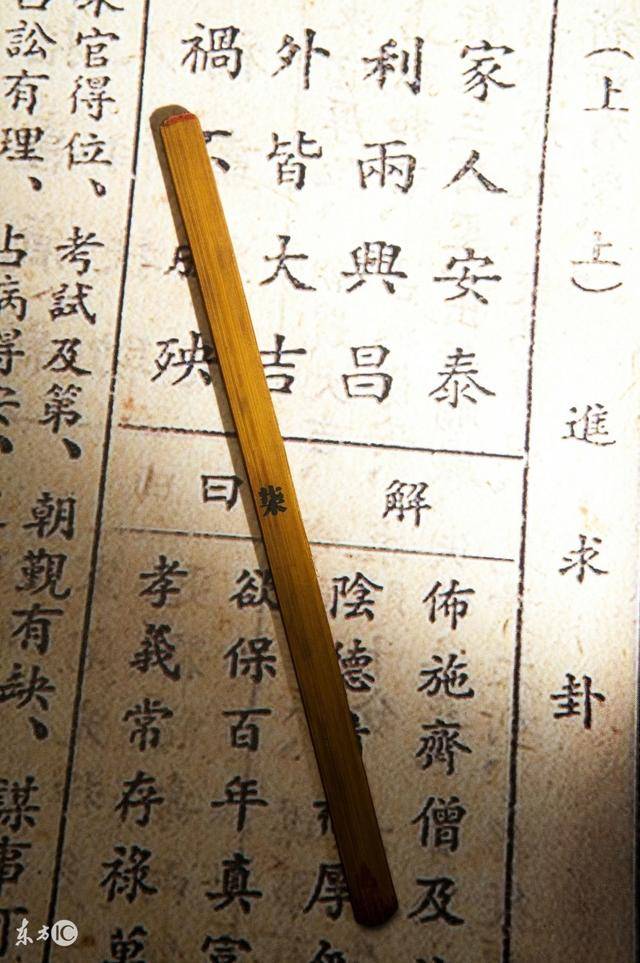 （上上）進求卦
家人安泰
利兩興昌
外皆大吉
禍殃
解曰
佈施齊僧及
陰德厚
欲保百年真富
孝義常存祿萬
官得位、考試及第、朝覲有缺、謀事可
訟有理、占病得安、
柒
东方IC